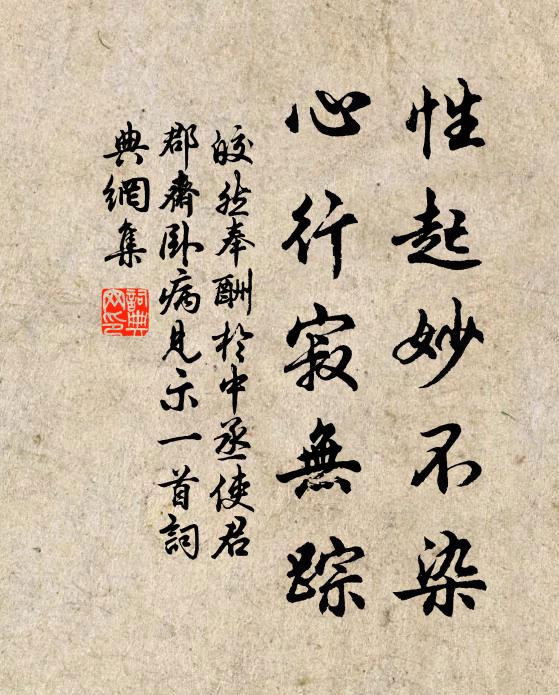 性起妙不染
心行寂無踪
皎然奉酬於中丞使君
郡齋卧病見示一首詞
典網集
詞典
网印